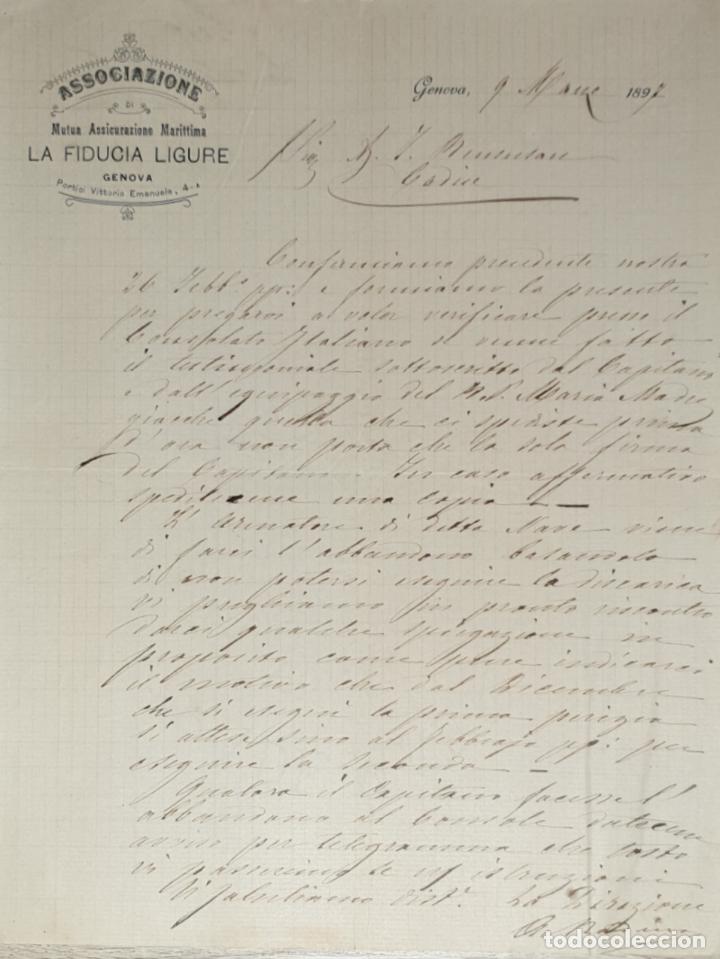 ASSOCIAZIONE
DI
Mutua Assicurazione Marittima
LA FIDUCIA LIGURE
GENOVA
Portici Vittorio Emanuele, 4-A
Genova, 9 Marzo 1897
Sig. A. J. Bensusan
Cadice
Confermiamo precedente nostra
26 Febb.º pp: e formiamo la presente
per pregarvi a voler verificare presso il
Consolato Italiano se venne fatto
il testimoniale sottoscritto dal Capitano
e dall'equipaggio del Maria Madre
giacché quella che ci spediste prima
d'ora non porta che la sola firma
del Capitano. In caso affermativo
speditecene una copia. —
L'Armatore di detta Nave viene
di farci l'abbandono basandolo
di non potersi eseguire la discarica
vi preghiamo in pronto riscontro
darci qualche spiegazione in
proposito come pure indicarci
il motivo che dal Dicembre
che si eseguì la prima perizia
si attese sino al febbrajo pp: per
eseguire la seconda —
Qualora il Capitano facesse l'
abbandono al Console datecene
avviso per telegramma che tosto
vi passeremo le istruzioni
Vi salutiamo dist.e La Direzione
todocoleccion.net